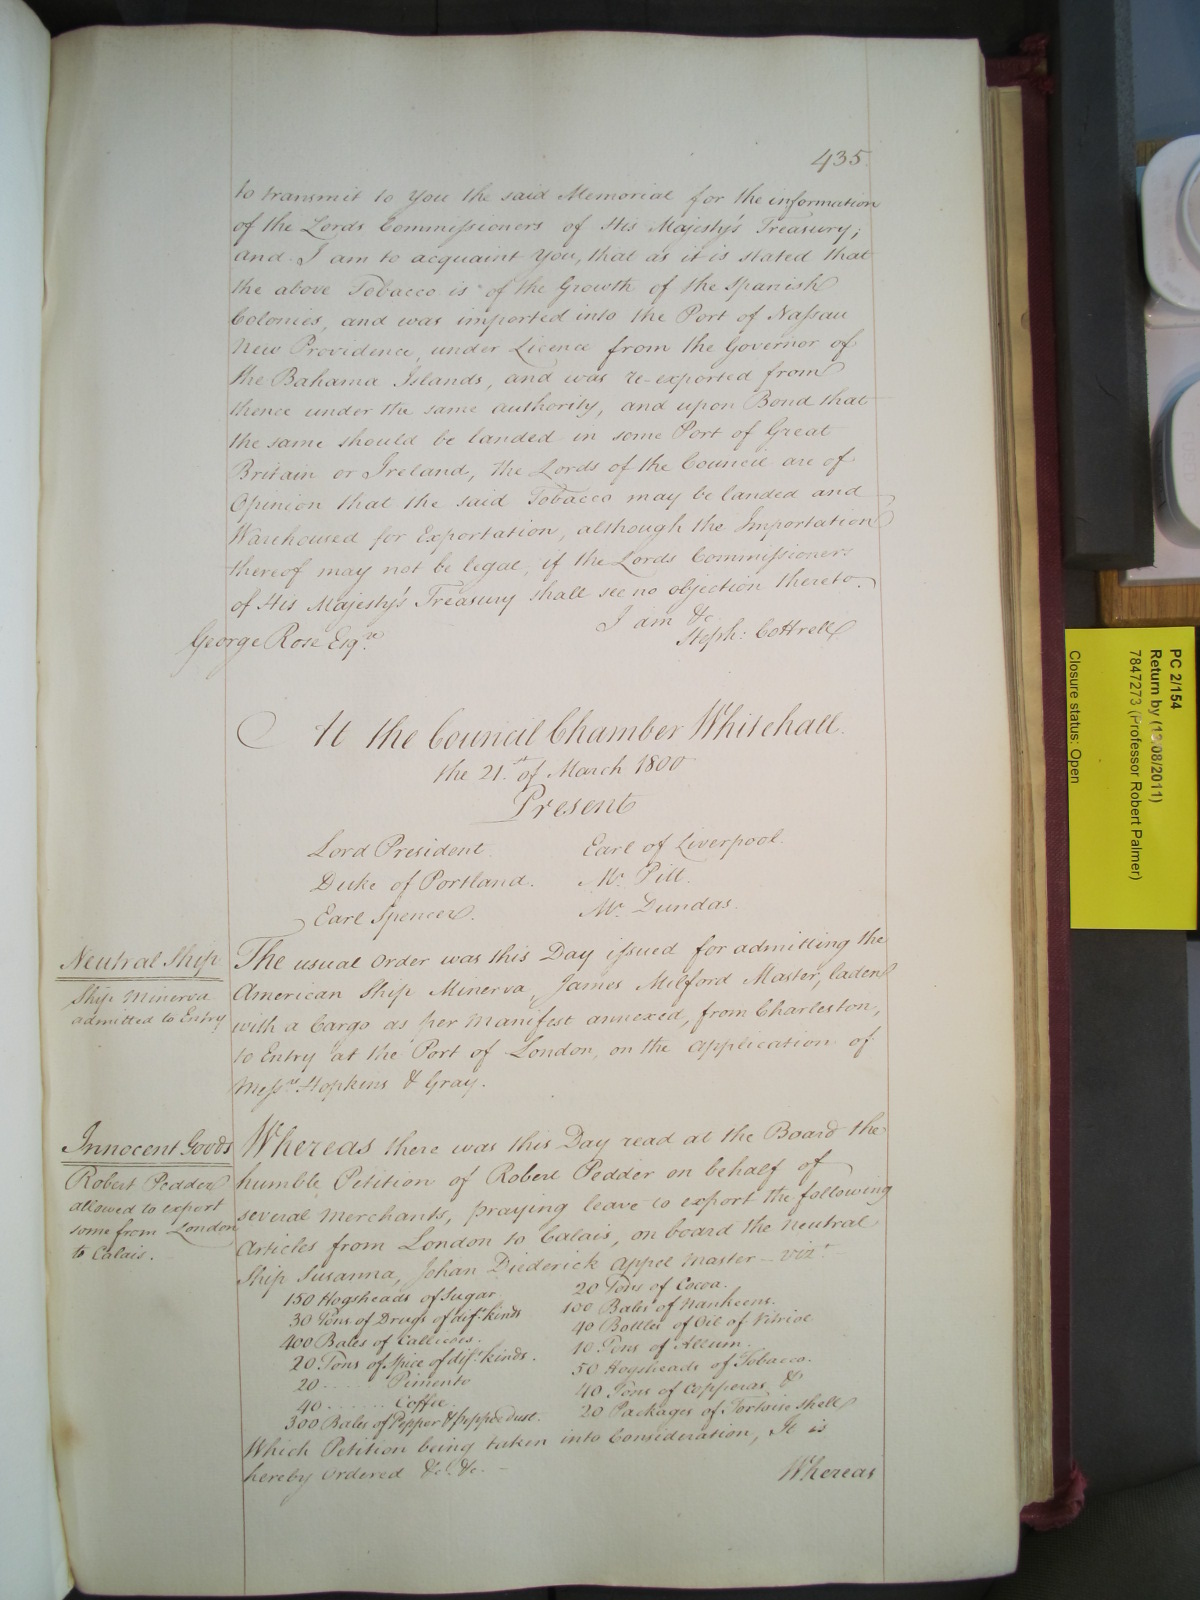 435.
to transmit to You the said Memorial for the information
of the Lords Commissioners of His Majesty's Treasury;
and I am to acquaint You, that as it is stated that
the above Tobacco is of the Growth of the Spanish
Colonies, and was imported into the Port of Nassau
New Providence, under Licence from the Governor of
the Bahama Islands, and was re-exported from
thence under the same authority, and upon Bond that
the same should be landed in some Port of Great
Britain or Ireland, the Lords of the Council are of
Opinion that the said Tobacco may be landed and
Warehoused for Exportation, although the Importation
thereof may not be legal, if the Lords Commissioners
of His Majesty's Treasury shall see no objection thereto.
I am &c
George Rose Esqre
Steph: Cottrell
At the Council Chamber Whitehall.
the 21st of March 1800
Present
Lord President. Earl of Liverpool.
Duke of Portland. Mr. Pitt.
Earl Spencer. Mr. Dundas.
Neutral Ship
Ship Minerva
admitted to Entry
The usual Order was this Day issued for admitting the
American Ship Minerva, James Milford Master, laden
with a Cargo as per Manifest annexed, from Charleston,
to Entry at the Port of London, on the application of
Messrs Hopkins & Gray.
Innocent Goods
Robert Pedder
allowed to export
some from London
to Calais.
Whereas there was this Day read at the Board the
humble Petition of Robert Pedder on behalf of
several Merchants, praying leave to export the following
Articles from London to Calais, on board the neutral
Ship Susanna, Johan Diederick Appel Master - vizt
150 Hogsheads of Sugar
30 Tons of Drugs of dift kinds
400 Bales of Callicoes.
20 Tons of Spice of dift kinds.
20 ..... Pimento
40 ....... Coffee.
300 Bales of Pepper & pepper dust.
20 Tons of Cocoa.
100 Bales of Nankeens.
40 Bottles of Oil of Vitriol
10 Tons of Allum.
50 Hogsheads of Tobacco.
40 Tons of Copperas &
20 Packages of Tortoise shell
Which Petition being taken into Consideration, It is
hereby Ordered &c. &c. -
Whereas
PC 2/154
Return by (12/08/2011)
7847273 (Professor Robert Palmer)
Closure status: Open